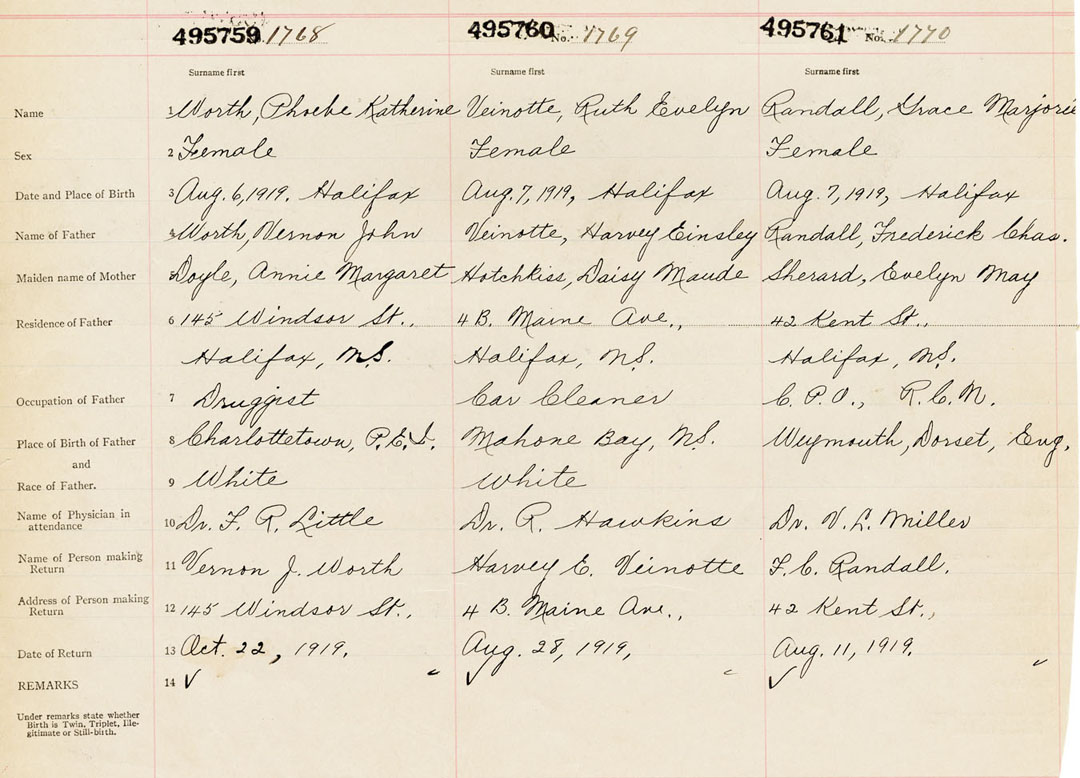 495759 No. 1768 495760 No. 1769 495761 No. 1770
Surname first Surname first Surname first
Name 1 Worth, Phoebe Katherine Veinotte, Ruth Evelyn Randall, Grace Marjorie
Sex 2 Female Female Female
Date and Place of Birth 3 Aug. 6, 1919. Halifax Aug. 7, 1919, Halifax Aug. 7, 1919, Halifax
Name of Father 4 Worth, Vernon John Veinotte, Harvey Einsley Randall, Frederick Chas.
Maiden name of Mother 5 Doyle, Annie Margaret Hotchkiss, Daisy Maude Sherard, Evelyn May
Residence of Father 6 145 Windsor St., 4 B. Maine Ave., 42 Kent St.,
Halifax, N.S. Halifax, N.S. Halifax, N.S.
Occupation of Father 7 Druggist Car Cleaner C. P. O., R. C. N.
Place of Birth of Father 8 Charlottetown, P.E.I. Mahone Bay, N.S. Weymouth, Dorset, Eng.
and
Race of Father. 9 White White
Name of Physician in
attendance 10 Dr. F. R. Little Dr. R. Hawkins Dr. V. L. Miller
Name of Person making
Return 11 Vernon J. Worth Harvey E. Veinotte F. C. Randall.
Address of Person making
Return 12 145 Windsor St., 4 B. Maine Ave., 42 Kent St.,
Date of Return 13 Oct. 22, 1919. Aug. 28, 1919, Aug. 11, 1919.
REMARKS 14 ✓ ✓ ✓
Under remarks state whether
Birth is Twin, Triplet, Ille-
gitimate or Still-birth.